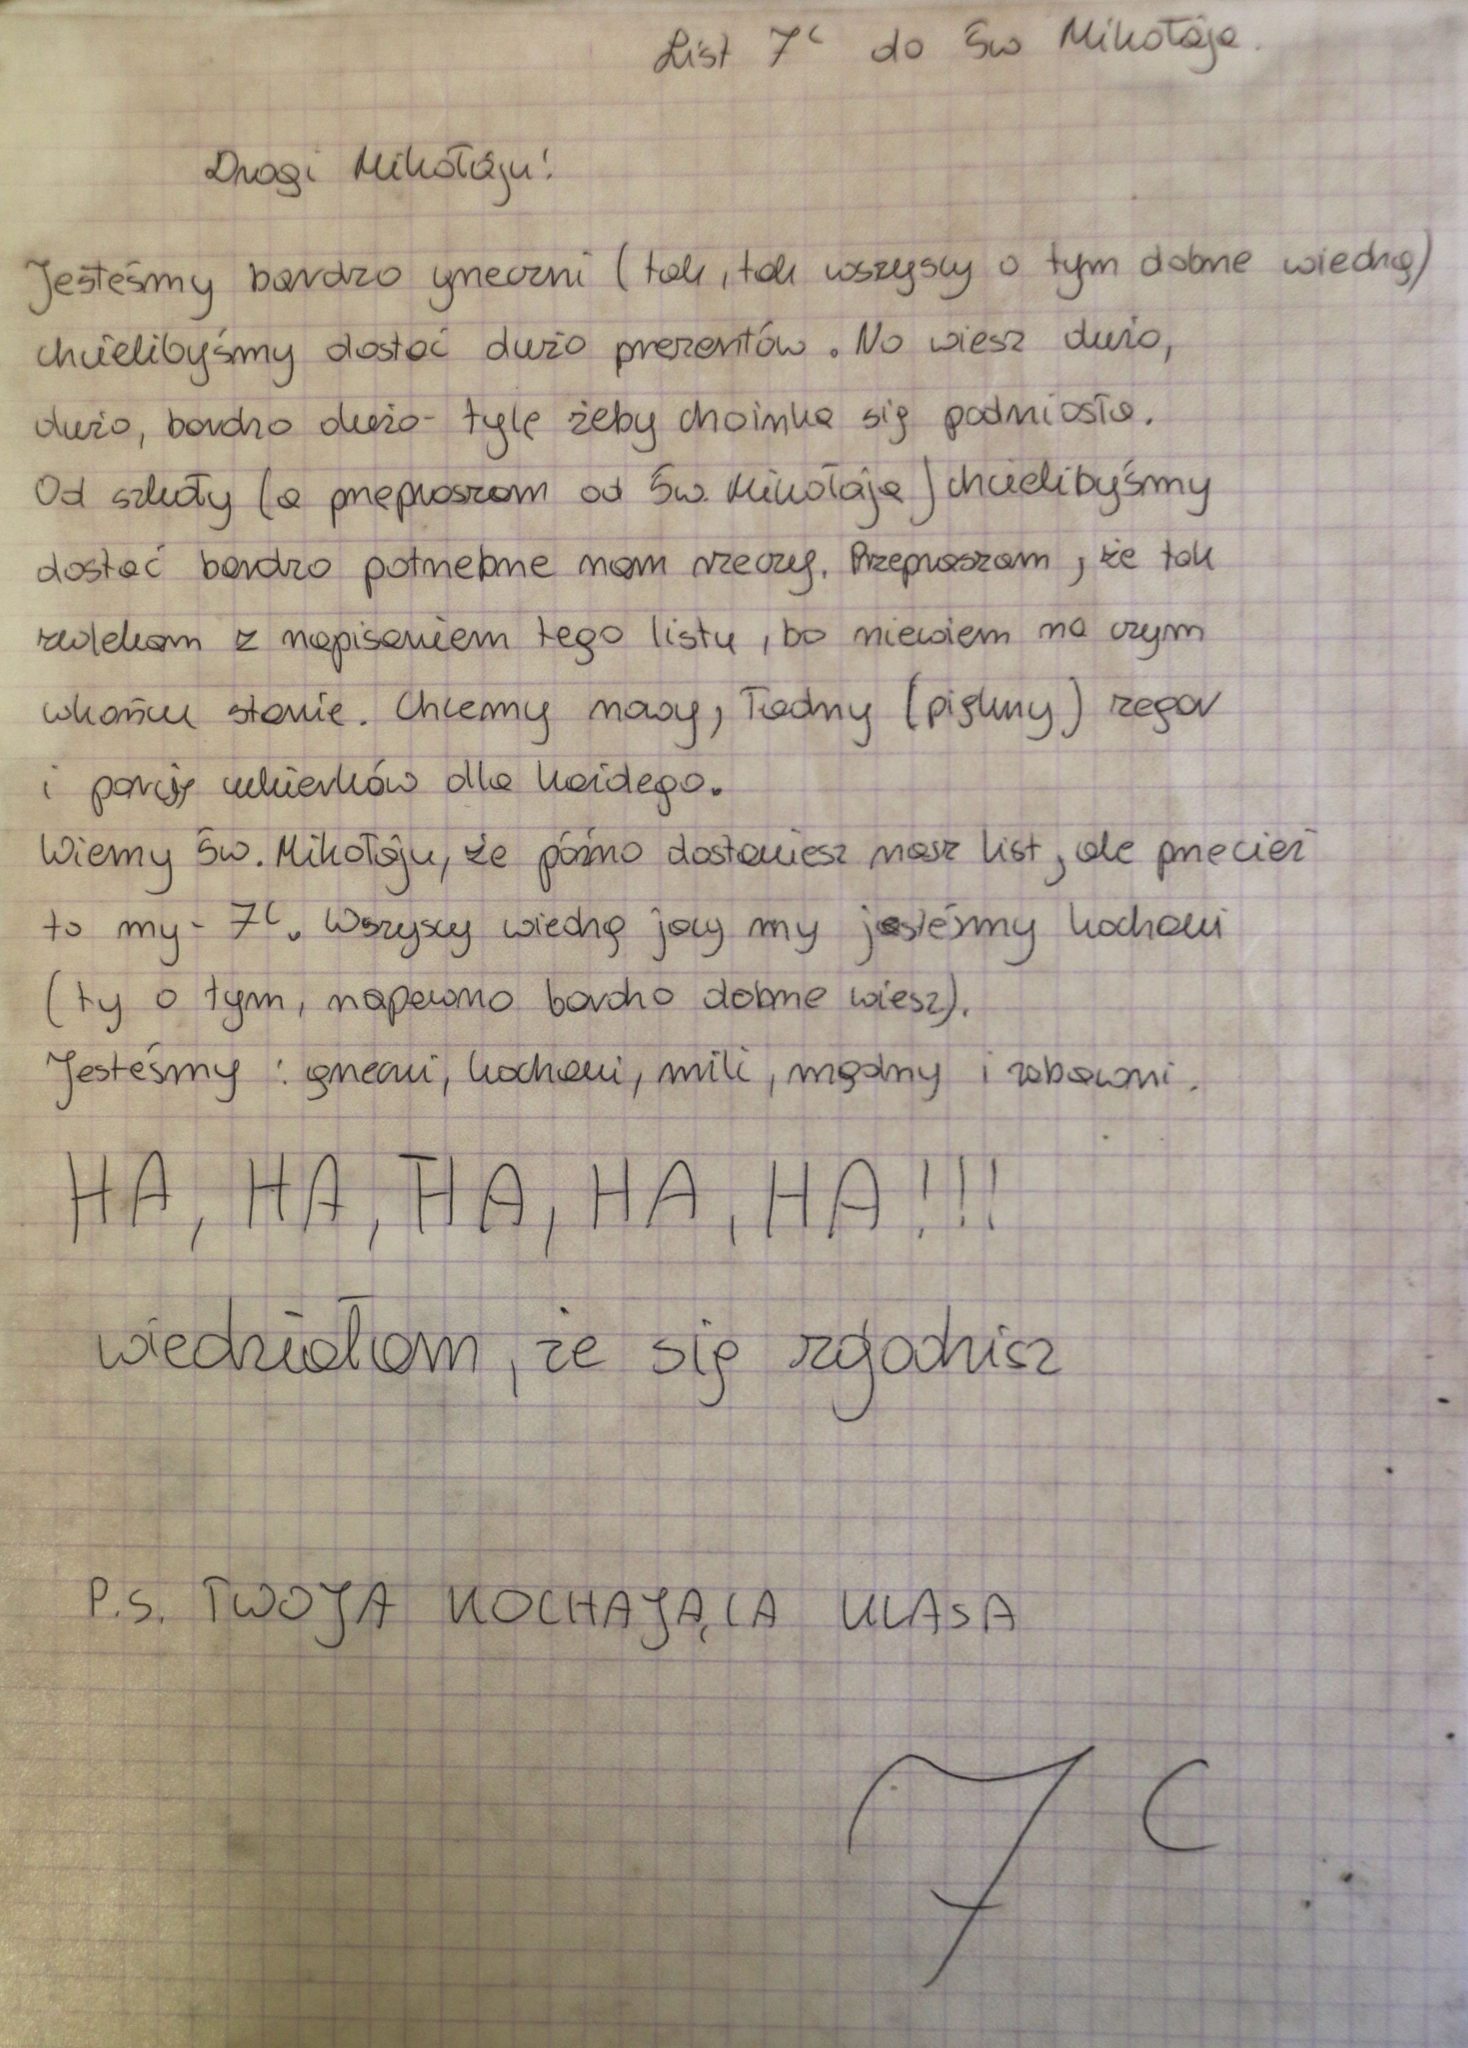 List 7c do Św Mikołaja.
Drogi Mikołaju!
Jesteśmy bardzo grzeczni (tak, tak wszyscy o tym dobrze wiedzą)
chcielibyśmy dostać dużo prezentów. No wiesz dużo,
dużo, bardzo dużo - tyle żeby choinka się podniosła.
Od szkoły (a przepraszam od Św. Mikołaja) chcielibyśmy
dostać bardzo potrzebne nam rzeczy. Przepraszam, że tak
zwlekam z napisaniem tego listu, bo niewiem na czym
wkońcu stanie. Chcemy nowy, ładny (piękny) zegar
i porcję cukierków dla każdego.
Wiemy Św. Mikołaju, że późno dostaniesz nasz list, ale przecież
to my - 7c. Wszyscy wiedzą jacy my jesteśmy kochani
(ty o tym, napewno bardzo dobrze wiesz).
Jesteśmy : grzeczni, kochani, mili, mądrzy i zabawni.
HA, HA, HA, HA, HA!!!
wiedziałam, że się zgodzisz
P.S. TWOJA KOCHAJĄCA KLASA
7 C